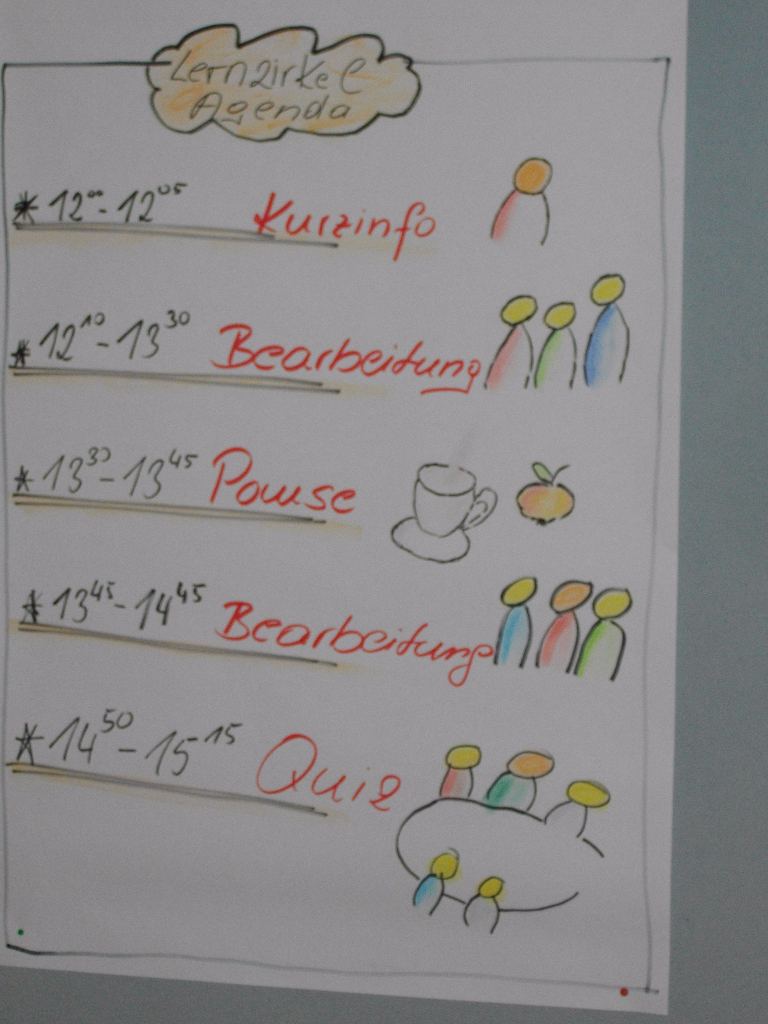 Lernzirkel
Agenda
* 12⁰⁰ - 12⁰⁵ Kurzinfo
* 12¹⁰ - 13³⁰ Bearbeitung
* 13³⁰ - 13⁴⁵ Pause
* 13⁴⁵ - 14⁴⁵ Bearbeitung
* 14⁵⁰ - 15¹⁵ Quiz